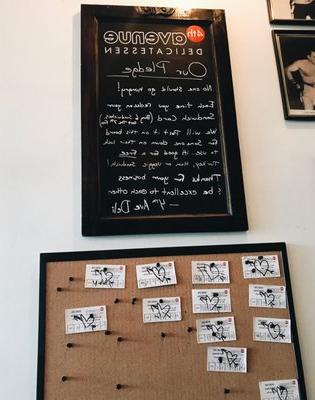 4th
avenue
DELICATESSEN
Our Pledge
No one should go hungry!
Each time you redeem your
Sandwich Card (Buy 6 Sandwiches
Get the 7th Free)
We will Post it on this board
for Someone down on their luck
to use. It's good for a Free
Turkey, Ham, or Veggie Sandwich!
Thanks for your business
& be excellent to each other
— 4th Ave Deli